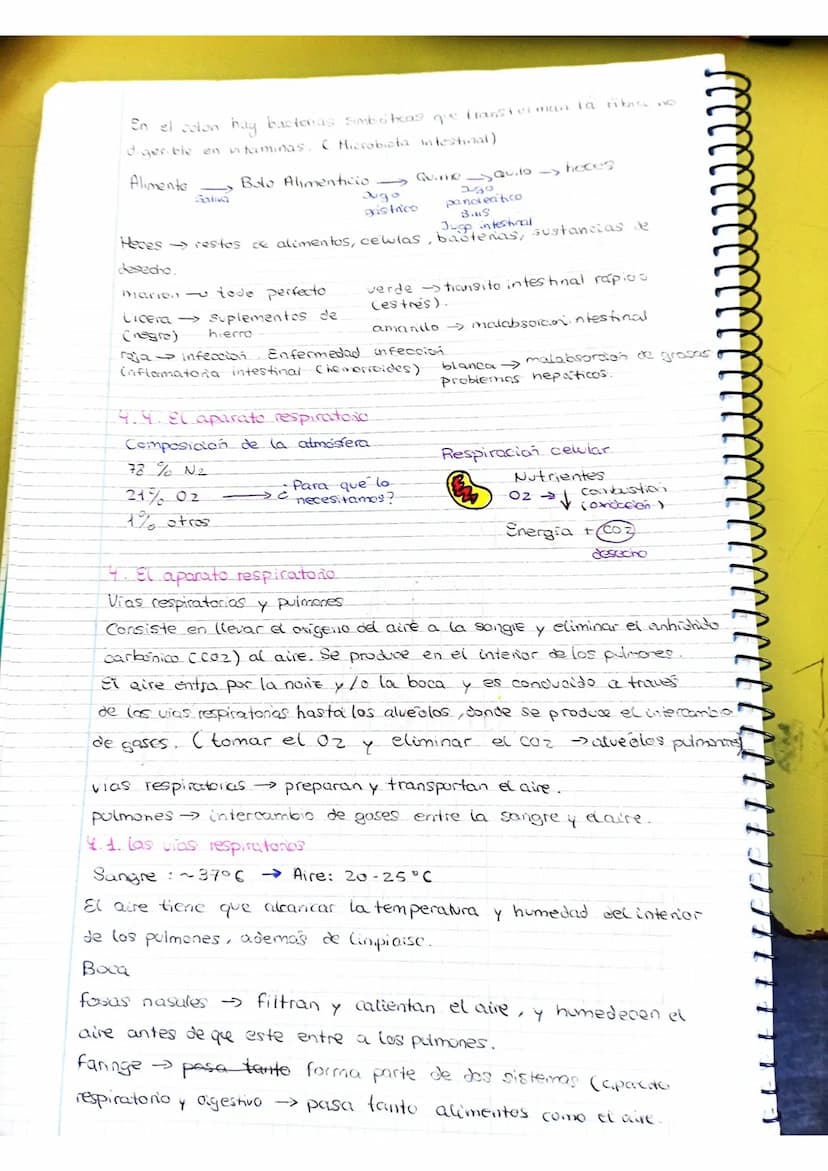 En el colon hay bacterias simbióticas que transforman la fibra no
digerible en vitaminas. (Microbiota intestinal)
Alimento → Bolo Alimenticio → Quimo → Quilo → heces
Saliva
Jugo
gástrico
Jugo
pancreático
Bilis
Jugo intestinal
Heces → restos de alimentos, celulas, bacterias, sustancias de
desecho.
marron → todo perfecto
verde → transito intestinal rápido
(estrés).
Licera → suplementos de
(negro) hierro
amarillo → malabsorcion intestinal
roja → infección. Enfermedad infección
inflamatoria intestinal (hemorroides)
blanca → malabsorcion de grasas
problemas hepáticos.
4.4. El aparato respiratorio
Composición de la atmósfera
78 % N2
21% O2 → ¿Para qué lo
necesitamos?
1% otros
Respiración celular
Nutrientes
O2 → ↓ combustión
(oxidación)
Energía + CO2
desecho
4. El aparato respiratorio
Vías respiratorias y pulmones
Consiste en llevar el oxígeno del aire a la sangre y eliminar el anhídrido
carbónico (CO2) al aire. Se produce en el interior de los pulmones.
El aire entra por la nariz y/o la boca y es conducido a través
de las vías respiratorias hasta los alveólos, donde se produce el intercambio
de gases. (tomar el O2 y eliminar el CO2 → alveólos pulmonares)
vías respiratorias → preparan y transportan el aire.
pulmones → intercambio de gases entre la sangre y el aire.
4.1. Las vías respiratorias
Sangre : ~37°C → Aire: 20-25°C
El aire tiene que alcanzar la temperatura y humedad del interior
de los pulmones, además de limpiarse.
Boca
fosas nasales → filtran y calientan el aire, y humedecen el
aire antes de que este entre a los pulmones.
Faringe → pasa tanto forma parte de dos sistemas (aparato
respiratorio y digestivo → pasa tanto alimentos como el aire.